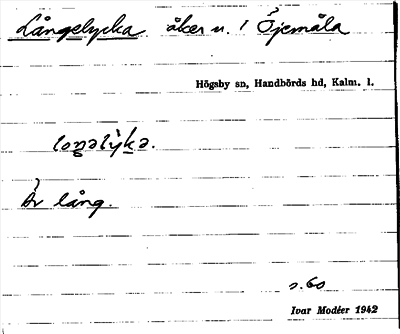 Långelycka åker u. 1 Öjemåla
Högsby sn, Handbörds hd, Kalm. l.
Är lång.
s. 60
Ivar Modéer 1942